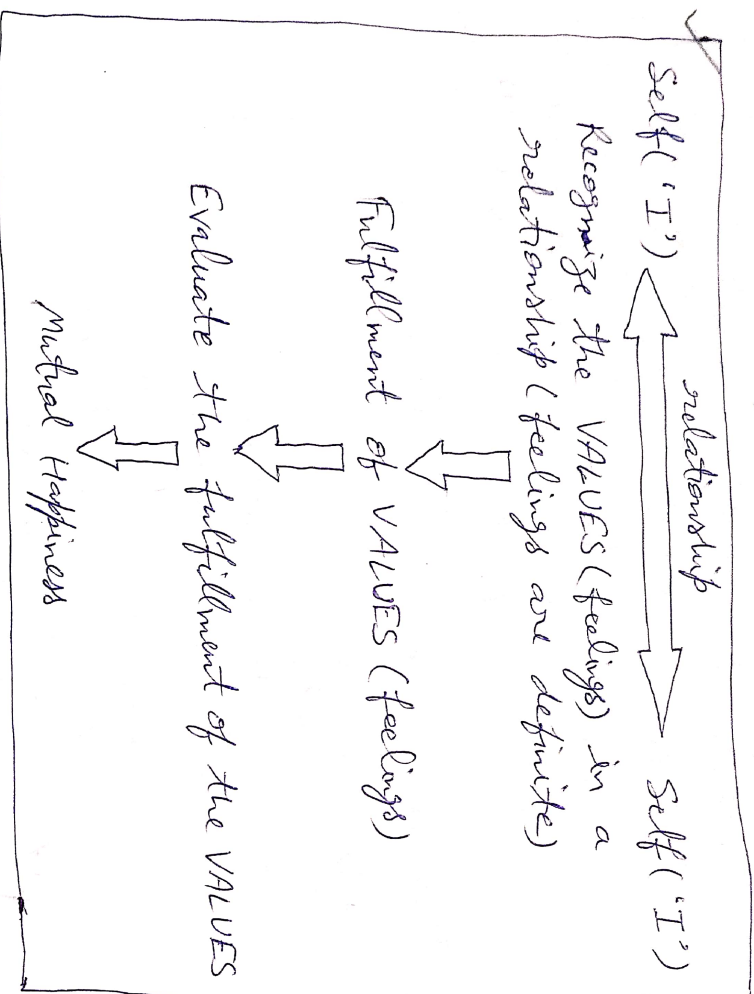 relationship
Self('I') Self('I')
Recognize the VALUES(feelings) in a
relationship(feelings are definite)
Fulfillment of VALUES(feelings)
Evaluate the fulfillment of the VALUES
Mutual Happiness